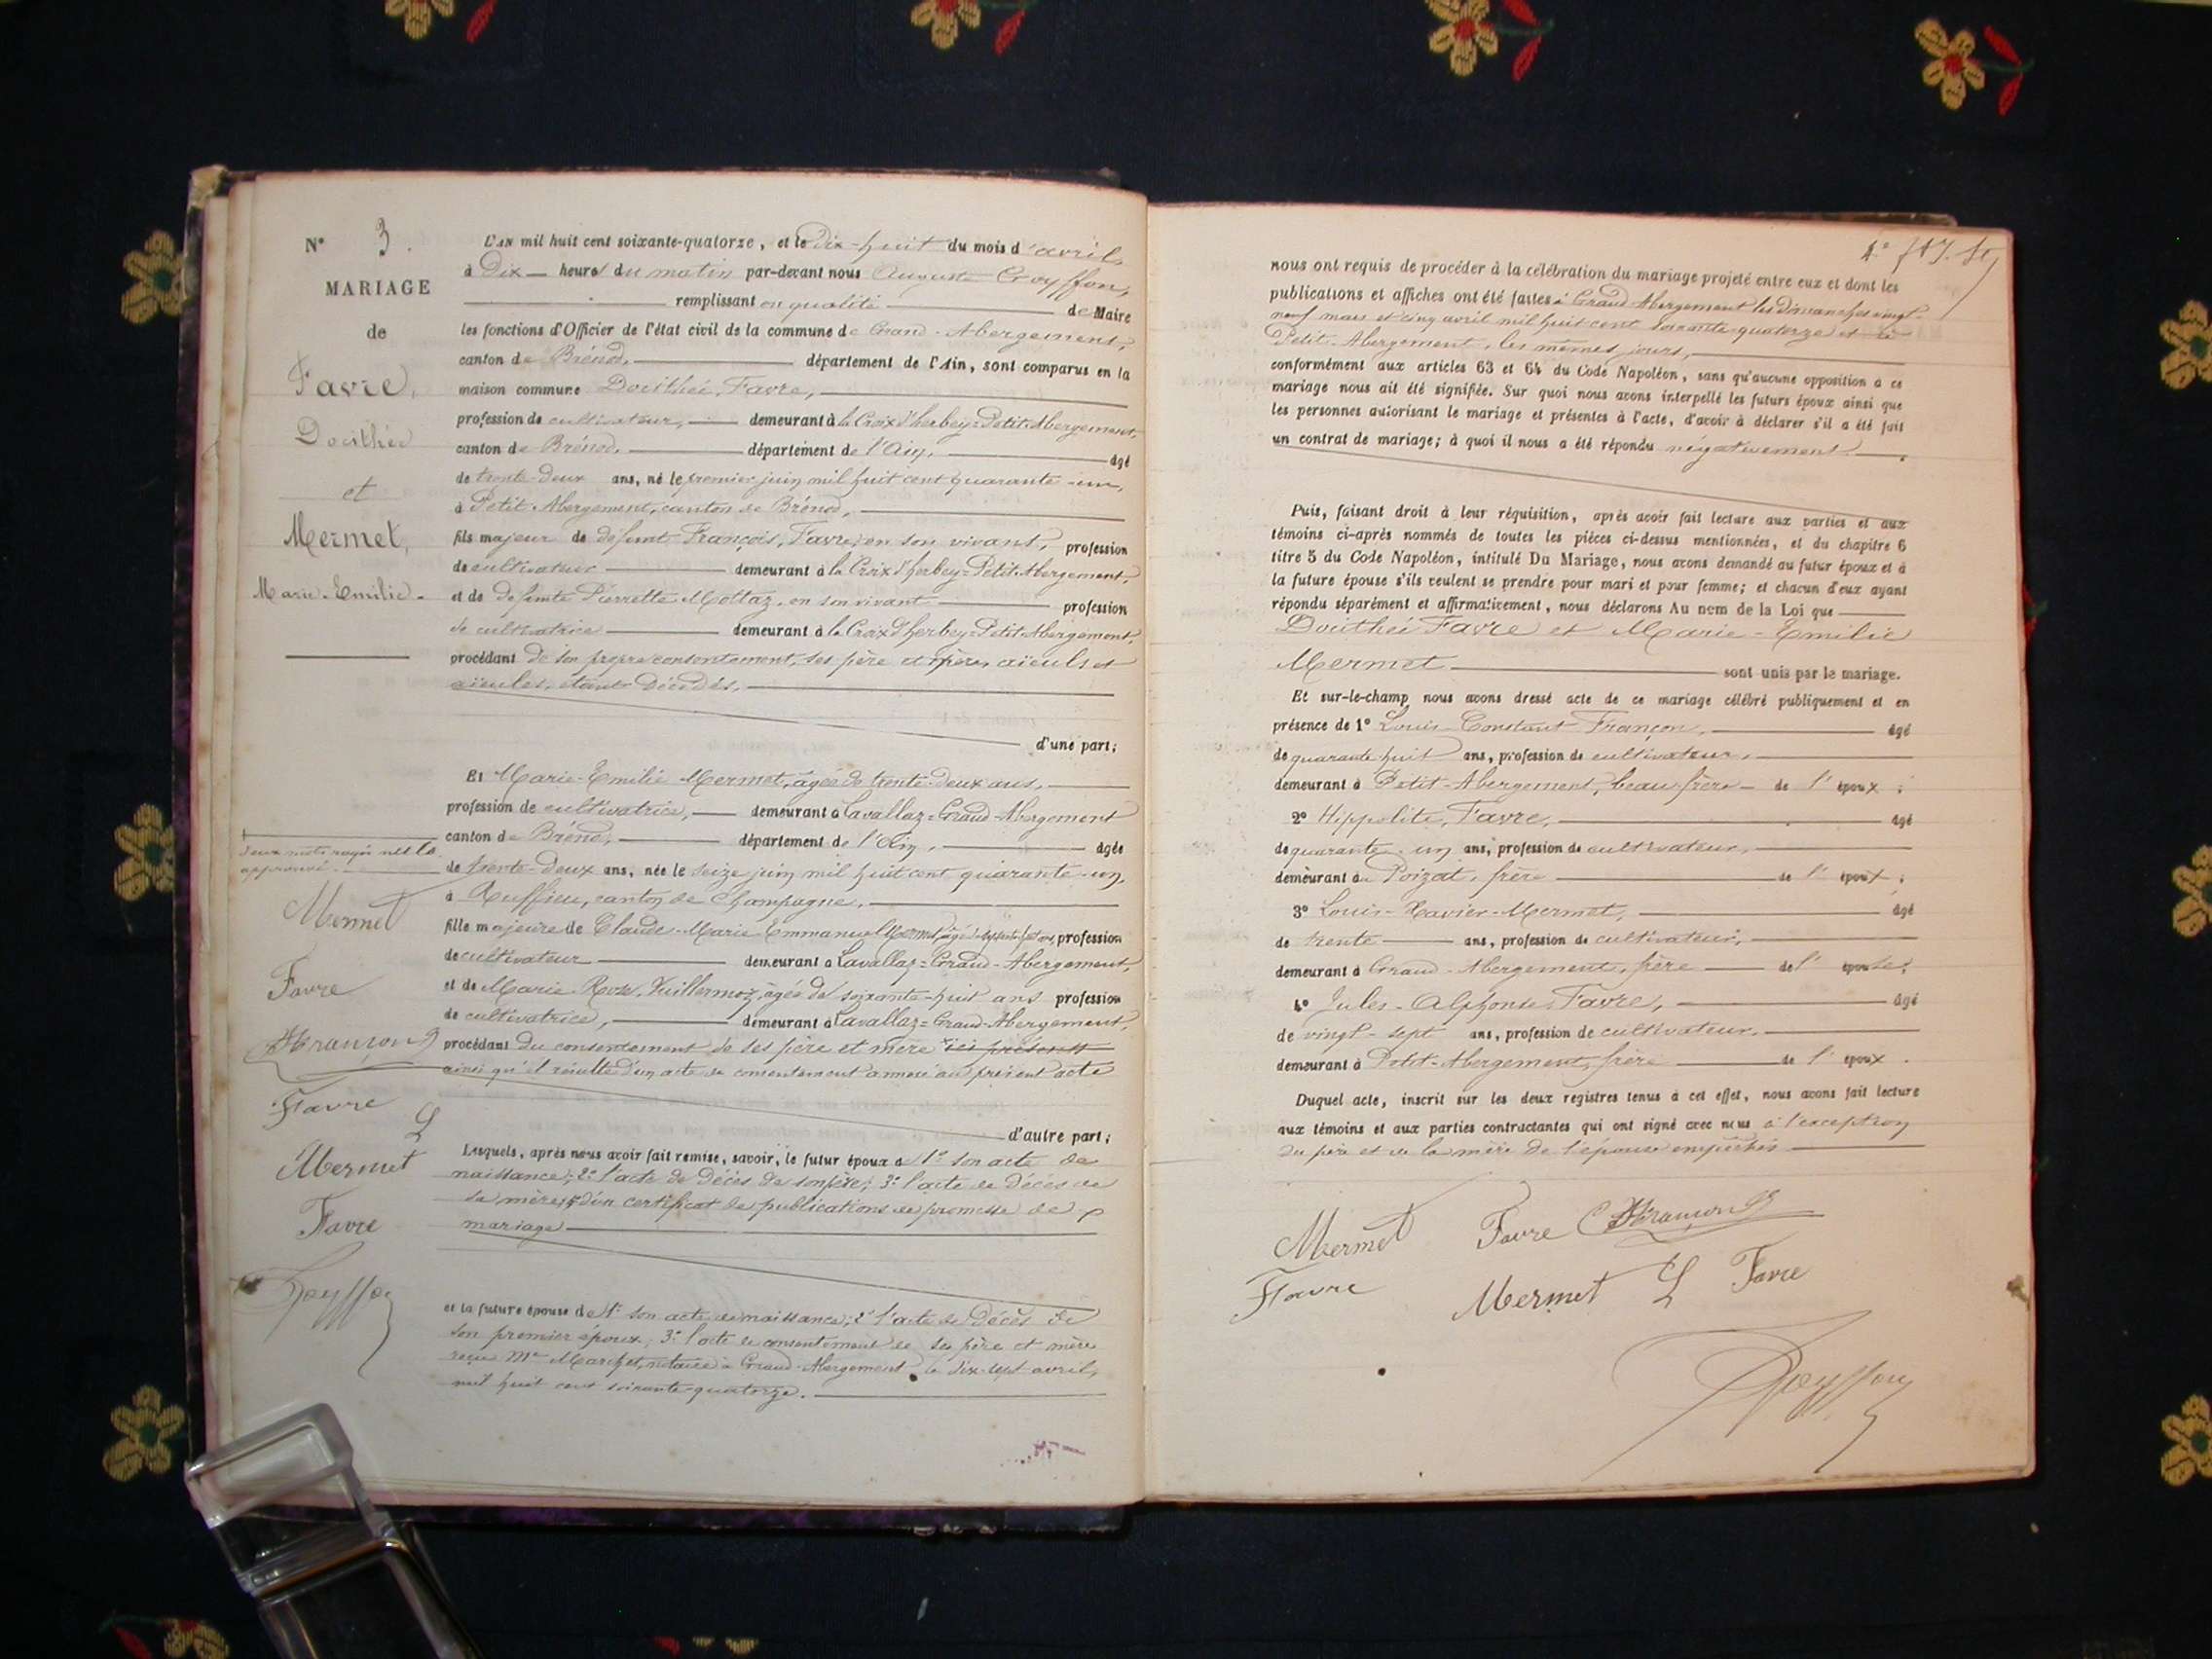 N° 3.
MARIAGE
de
Favre,
Dosithée
et
Mermet,
Marie-Emilie.
L'AN mil huit cent soixante-quatorze, et le Dix-huit du mois d'avril,
à Dix heures du matin par-devant nous Auguste
remplissant en qualité de Maire
les fonctions d'Officier de l'état civil de la commune de Grand-Abergement,
canton de Brénod, département de l'Ain, sont comparus en la
maison commune Dosithée, Favre,
profession de cultivateur, demeurant à la Croix d'herbey=Petit-Abergement,
canton de Brénod, département de l'Ain, âgé
de trente-deux ans, né le premier juin mil huit cent quarante-un,
à Petit-Abergement, canton de Brénod,
fils majeur de défunt François, Favre, en son vivant, profession
de cultivateur demeurant à la Croix d'herbey=Petit-Abergement,
et de defunte Pierrette Mottaz, en son vivant profession
de cultivatrice demeurant à la Croix d'herbey=Petit-Abergement,
procédant de son propre consentement, ses père et mère, aïeuls et
aïeules, étant décédés,
d'une part;
Et Marie-Emilie Mermet, âgée de trente-deux ans,
profession de cultivatrice, demeurant à Lavallaz=Grand-Abergement
canton de Brénod, département de l'Ain, âgée
de trente-deux ans, née le seize juin mil huit cent quarante-un,
à Ruffieu, canton de Champagne,
fille majeure de Claude-Marie-Emmanuel Mermet, âgé de ans, profession
de cultivateur demeurant à Lavallaz=Grand-Abergement,
et de Marie-Rose, Vuillermoz, âgée de soixante-huit ans profession
de cultivatrice, demeurant à Lavallaz=Grand-Abergement,
procédant du consentement de ses père et mère ici présents
ainsi qu'il résulte d'un acte de consentement annexé au présent acte
d'autre part;
Lesquels, après nous avoir fait remise, savoir, le futur époux de 1° son acte de
naissance; 2° l'acte de décès de son père; 3° l'acte de décès de
sa mère; 4° d'un certificat de publications de promesse de
mariage
et la future épouse de 1° son acte de naissance; 2° l'acte de Décès de
son premier époux; 3° l'acte de consentement de ses père et mère
reçu Me notaire à Grand-Abergement le dix-sept avril,
mil huit cent soixante-quatorze.
deux mots rayés nuls
approuvé.
Mermet
Favre
Françon
Favre
Mermet L
Favre
4e
nous ont requis de procéder à la célébration du mariage projeté entre eux et dont les
publications et affiches ont été faites à Grand-Abergement les dimanches vingt-
neuf mars et cinq avril mil huit cent soixante-quatorze et à
Petit-Abergement, les mêmes jours,
conformément aux articles 63 et 64 du Code Napoléon, sans qu'aucune opposition à ce
mariage nous ait été signifiée. Sur quoi nous avons interpellé les futurs époux ainsi que
les personnes autorisant le mariage et présentes à l'acte, d'avoir à déclarer s'il a été fait
un contrat de mariage; à quoi il nous a été répondu négativement.
Puis, faisant droit à leur réquisition, après avoir fait lecture aux parties et aux
témoins ci-après nommés de toutes les pièces ci-dessus mentionnées, et du chapitre 6
titre 5 du Code Napoléon, intitulé Du Mariage, nous avons demandé au futur époux et à
la future épouse s'ils veulent se prendre pour mari et pour femme; et chacun d'eux ayant
répondu séparément et affirmativement, nous déclarons Au nom de la Loi que
Dosithée Favre et Marie-Emilie
Mermet sont unis par le mariage.
Et sur-le-champ nous avons dressé acte de ce mariage célébré publiquement et en
présence de 1° Louis-Constant Françon, âgé
de quarante-huit ans, profession de cultivateur,
demeurant à Petit-Abergement, beau-frère de l'époux;
2° Hippolite, Favre, âgé
de quarante-un ans, profession de cultivateur,
demeurant à Poizat, frère de l'époux;
3° Louis-Xavier-Mermet, âgé
de trente ans, profession de cultivateur,
demeurant à Grand-Abergement, frère de l'épouse;
4° Jules-Alphonse, Favre, âgé
de vingt-sept ans, profession de cultivateur,
demeurant à Petit-Abergement, frère de l'époux.
Duquel acte, inscrit sur les deux registres tenus à cet effet, nous avons fait lecture
aux témoins et aux parties contractantes qui ont signé avec nous à l'exception
du père et de la mère de l'épouse empêchés
Mermet Favre Françon
Favre Mermet L Favre